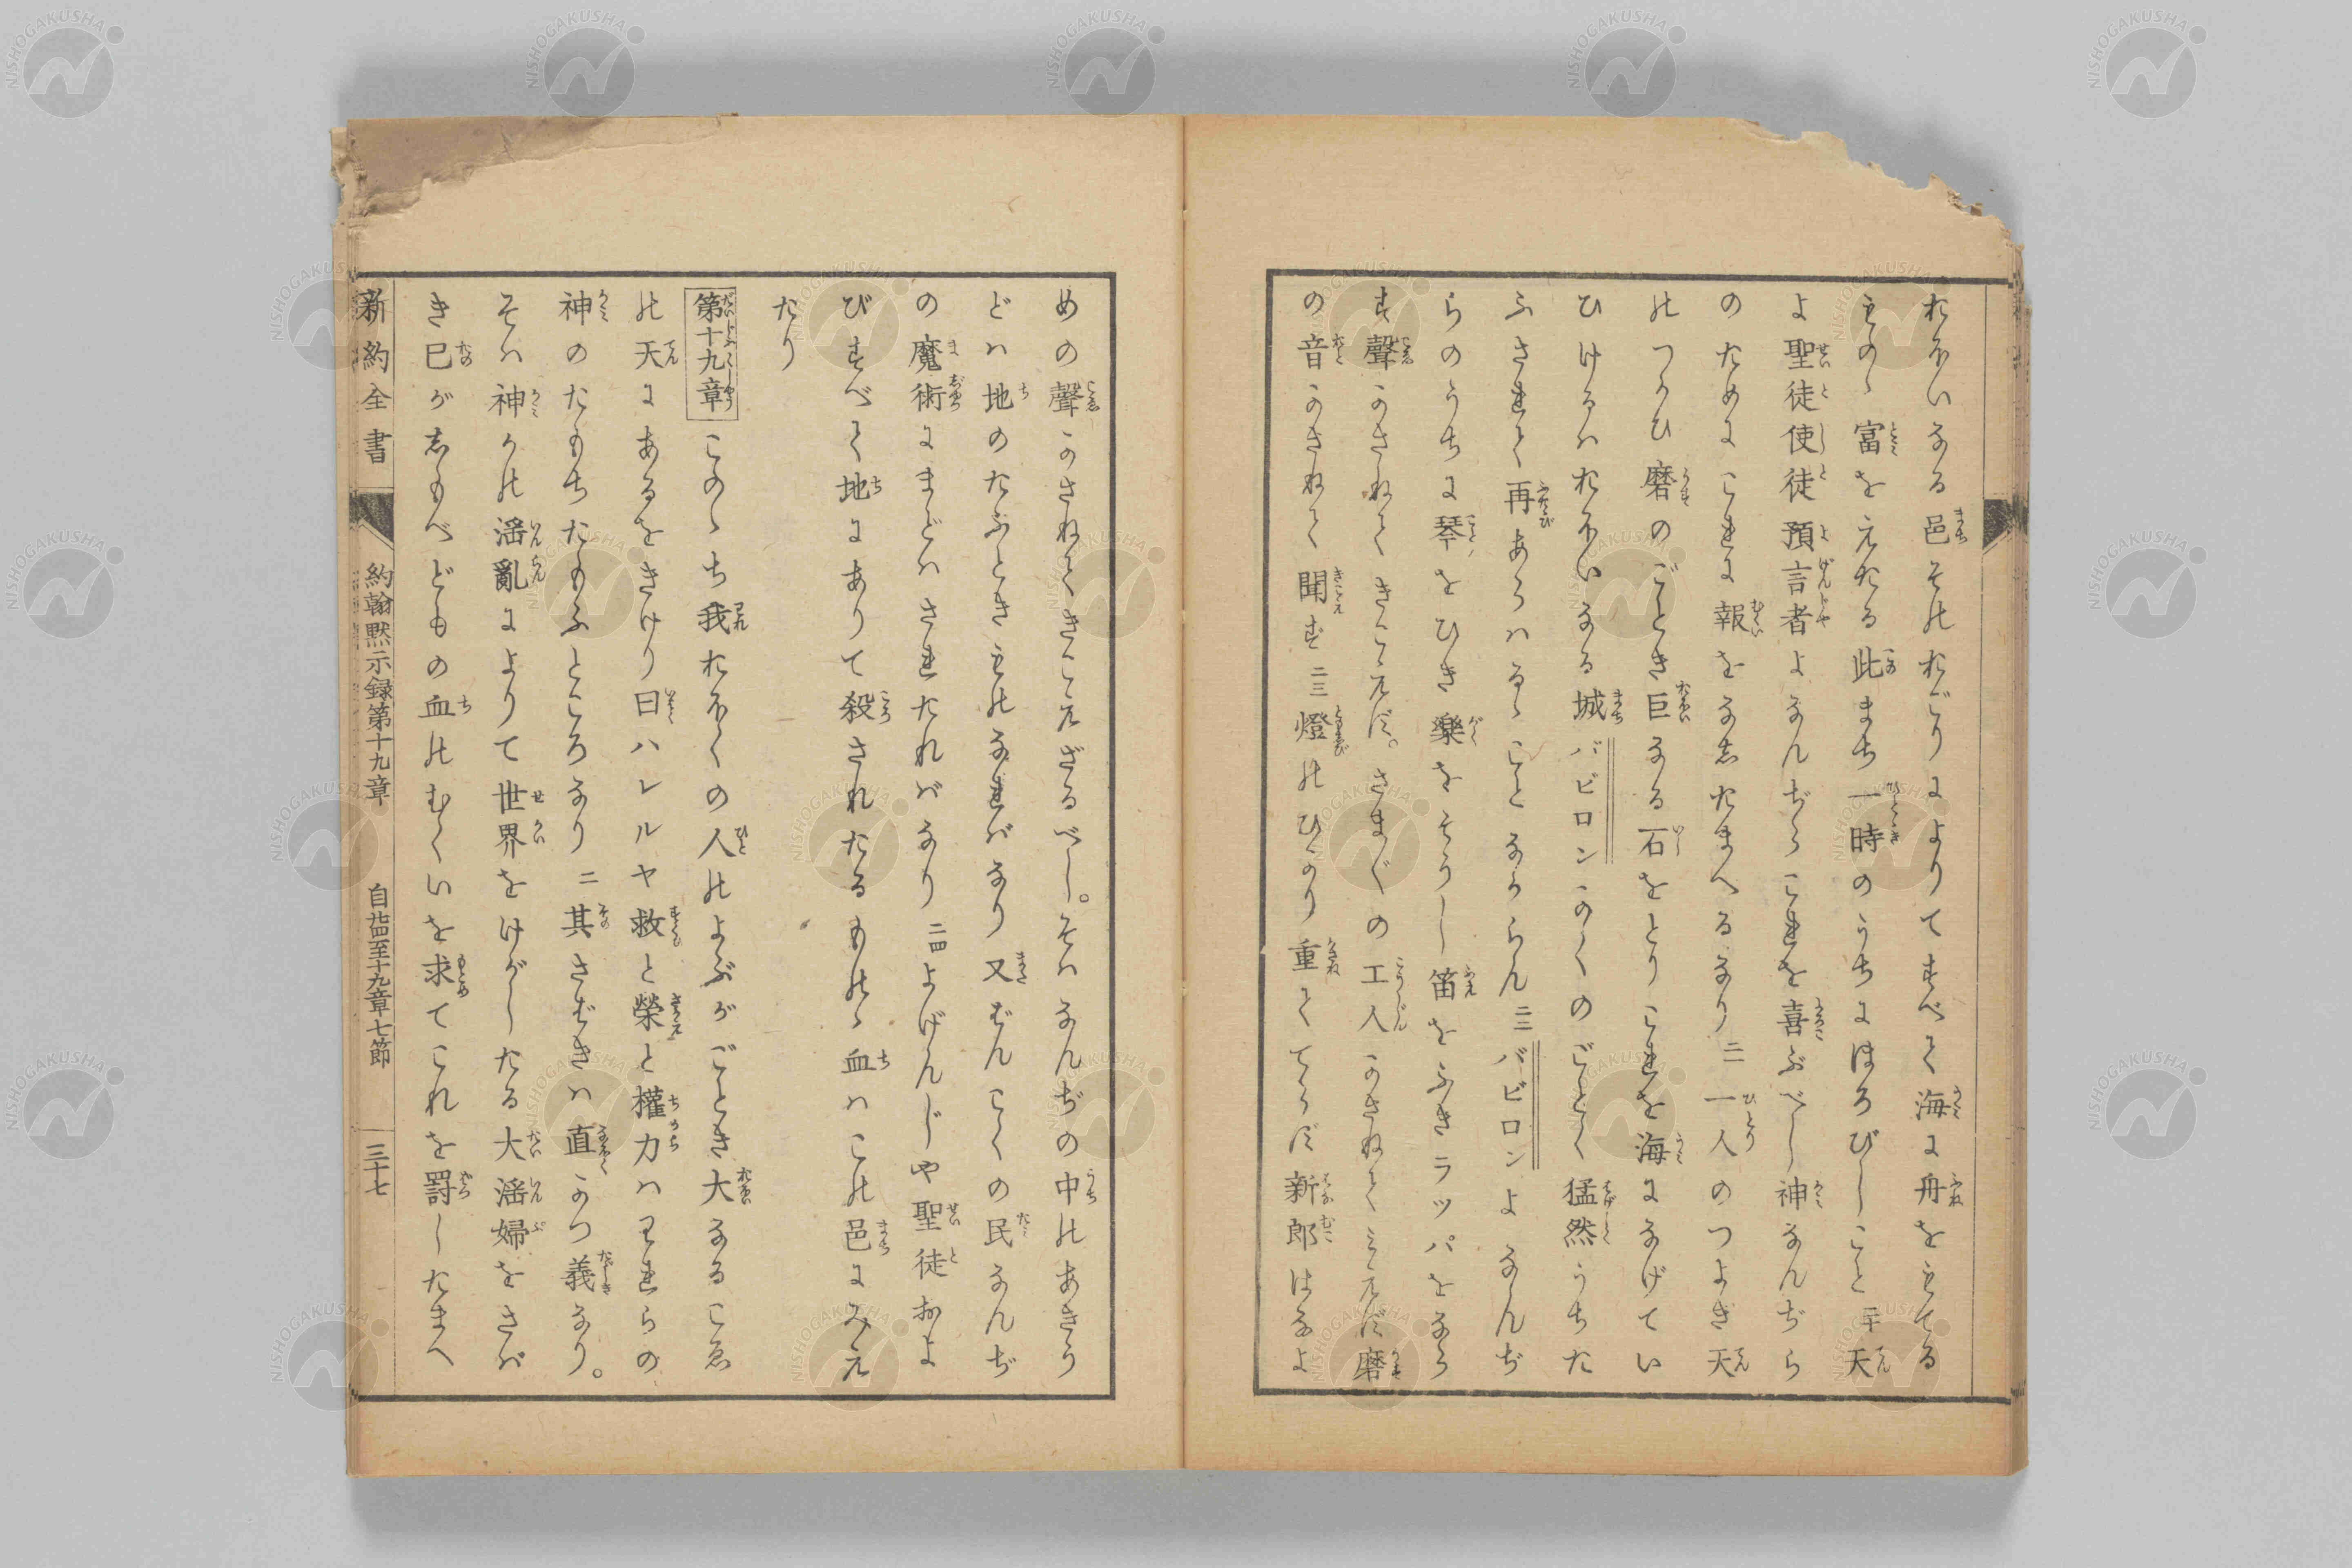 おほいなる邑そのおごりによりてすべて海に舟をもてる
ものゝ富をえたる此まち一時のうちにほろびしこと二十天
よ聖徒使徒預言者よなんぢらこれを喜ぶべし神なんぢら
のためにこれに報をなしたまへるなり二一一人のつよき天
のつかひ磨のごとき巨なる石をとりこれを海になげてい
ひけるはおほいなる城バビロンかくのごとく猛然うちた
ふされて再あらはるゝことなからん二二バビロンよなんぢ
らのうちに琴をひき樂をそうし笛をふきラッパをなら
す聲かさねてきこえず。さま〲の工人かさねてみえず磨
の音かさねて聞ず二三燈のひかり重ててらず新郎はなよ
めの聲かさねてきこえざるべし。そはなんぢの中のあきう
どは地のたふときものなればなり又ばんこくの民なんぢ
の魔術にまどはされたればなり二四よげんじや聖徒およ
びすべて地にありて殺されたるものゝ血はこの邑にみえ
たり
第十九章このゝち我おほくの人のよぶがごとき大なるこゑ
の天にあるをきけり曰ハレルヤ救と榮と權力はわれらの
神のたもちたもふところなり二其さばきは直かつ義なり。
そは神かの滛亂によりて世界をけがしたる大滛婦をさば
き己がしもべどもの血のむくいを求てこれを罸したまへ
新約全書 約翰黙示録第十九章 自十八章至十九章七節 三十七
NISHOGAKUSHA